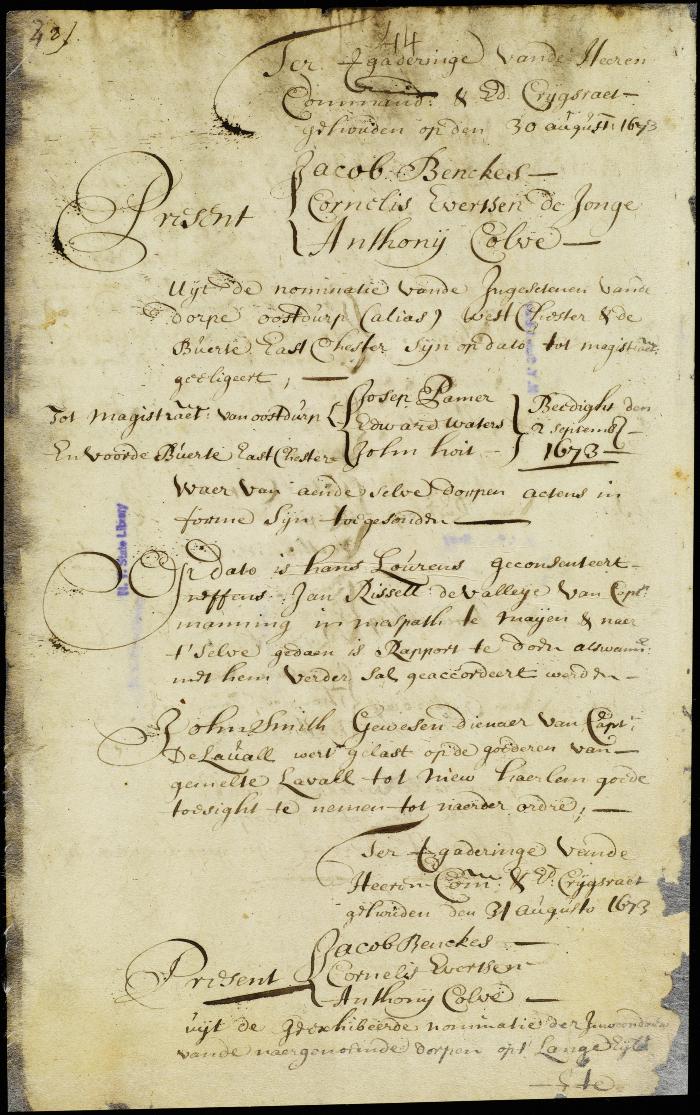 44
Ter Vergaderinge vande Heeren
Command: & Ed. Crÿgsraet
gehouden op den 30 august: 1673
Present
Jacob Benckes
Cornelis Evertsen de Jonge
Anthonÿ Colve
Uÿt de nominatie vande Ingesetenen vande
dorpe oostdurp (alias) West Chester & de
Buerte East Chester sÿn op dato tot magistraet
geeligeert,
Tot magistraet: van oostdurp
En voorde Buerte East Chester
Josep Pamer
Edward Waters
John hoit
Beedight den
2 septemb
1673
Waer van aende selve dorpen actens in
forme sÿn toegesonden
Op dato is hans Lourens geconsenteert
neffens Jan Rissell de valleye van Capt.
manning in maspath te maÿen & naer
t'selve gedaen is Rapport te doen alswanneer
met hem verder sal geaccordeert werden
John Smith Gewesen dienaer van Capt.
DeLavall wert gelast op de goederen van
gemelte Lavall tot niew haerlem goede
toesight te nemen tot naerder ordre,
Ter Vergaderinge vande
Heeren Com: & Ed. Crÿgsraet
gehouden den 31 augusto 1673
Present
Jacob Benckes
Cornelis Evertsen
Anthonÿ Colve
uÿt de Geexhibeerde nominatie der Inwoonders
vande naergenoemde dorpen opt Lange Eÿl
State Library